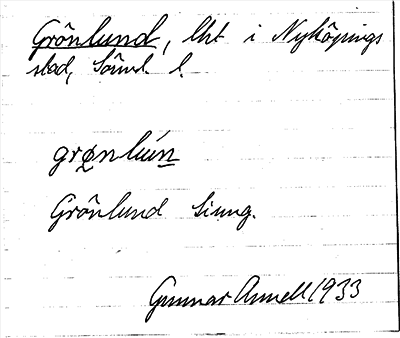 Grönlund, lht i Nyköpings
stad, Sörml. l.
grø̨nlún
Grönlund
Gunnar Annell 1933